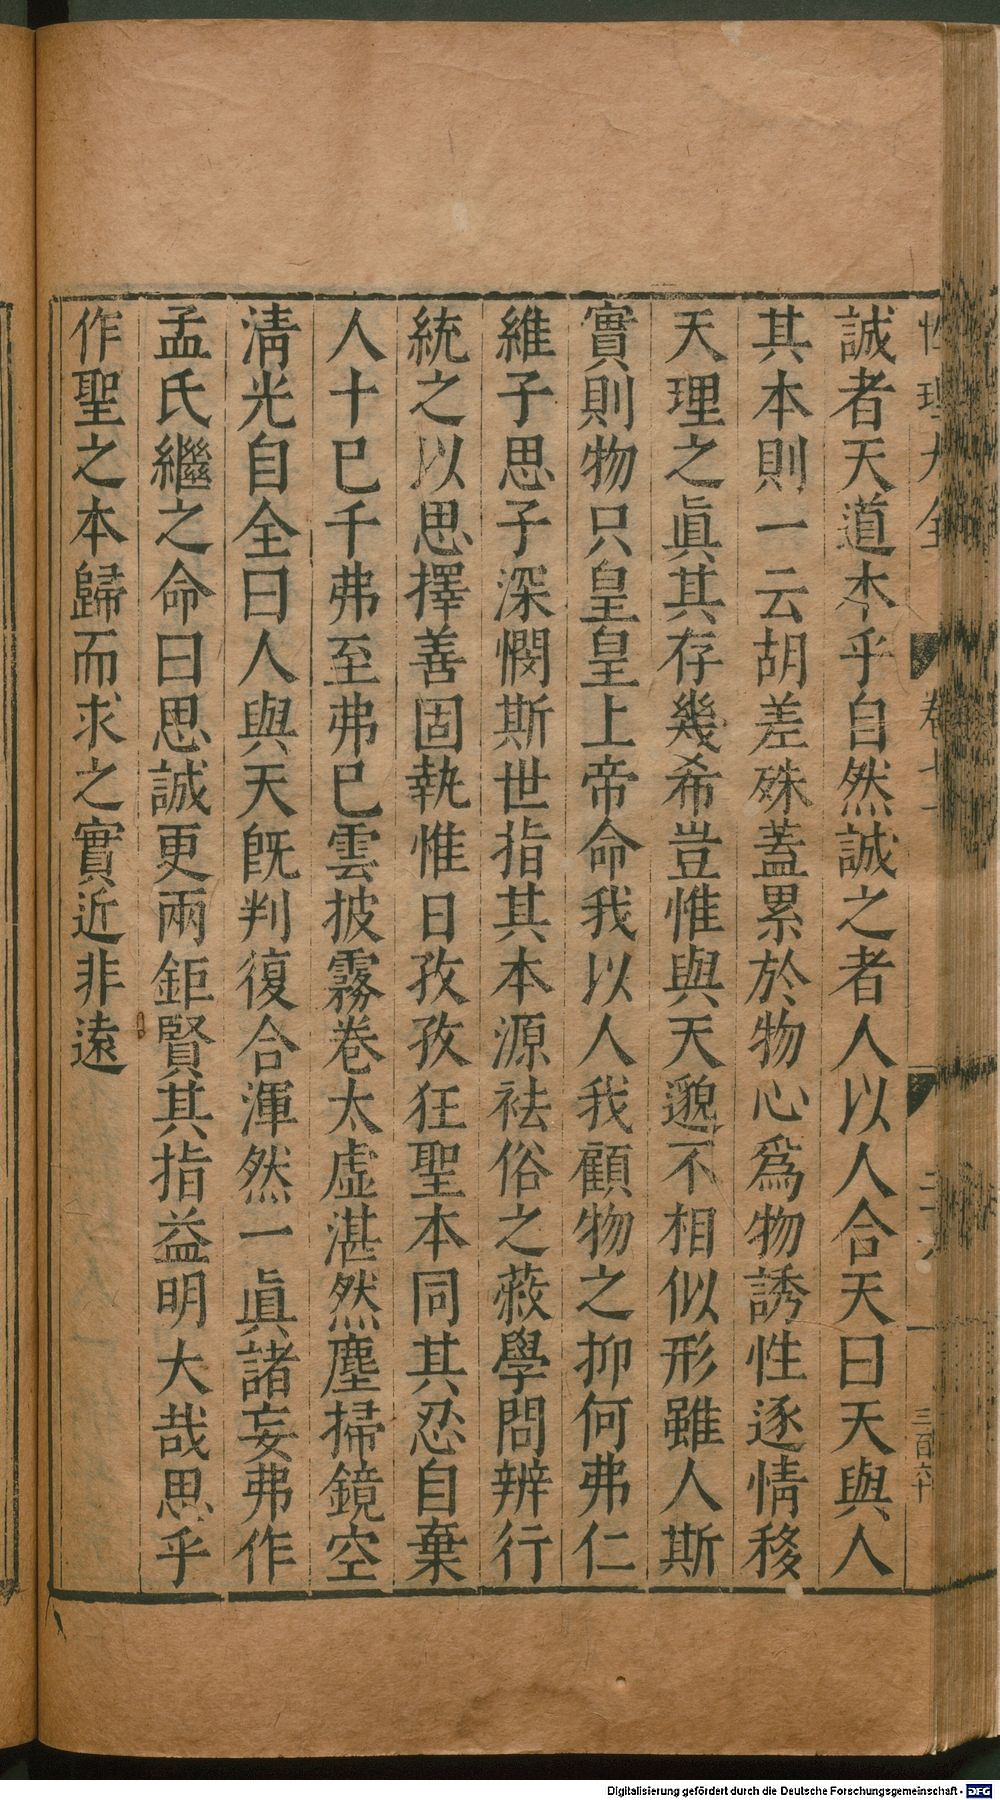 性理大全 卷七十 三百六十
誠者天道本乎自然誠之者人以人合天曰天與人
其本則一云胡差殊蓋累於物心爲物誘性逐情移
天理之眞其存幾希豈惟與天邈不相似形雖人斯
實則物只皇皇上帝命我以人我顧物之抑何弗仁
維子思子深憫斯世指其本源祛俗之蔽學問辨行
統之以思擇善固執惟日孜孜狂聖本同其忍自棄
人十已千弗至弗已雲披霧卷太虛湛然塵掃鏡空
淸光自全曰人與天旣判復合渾然一眞諸妄弗作
孟氏繼之命曰思誠更兩鉅賢其指益明大哉思乎
作聖之本歸而求之實近非遠
Digitalisierung gefördert durch die Deutsche Forschungsgemeinschaft - DFG